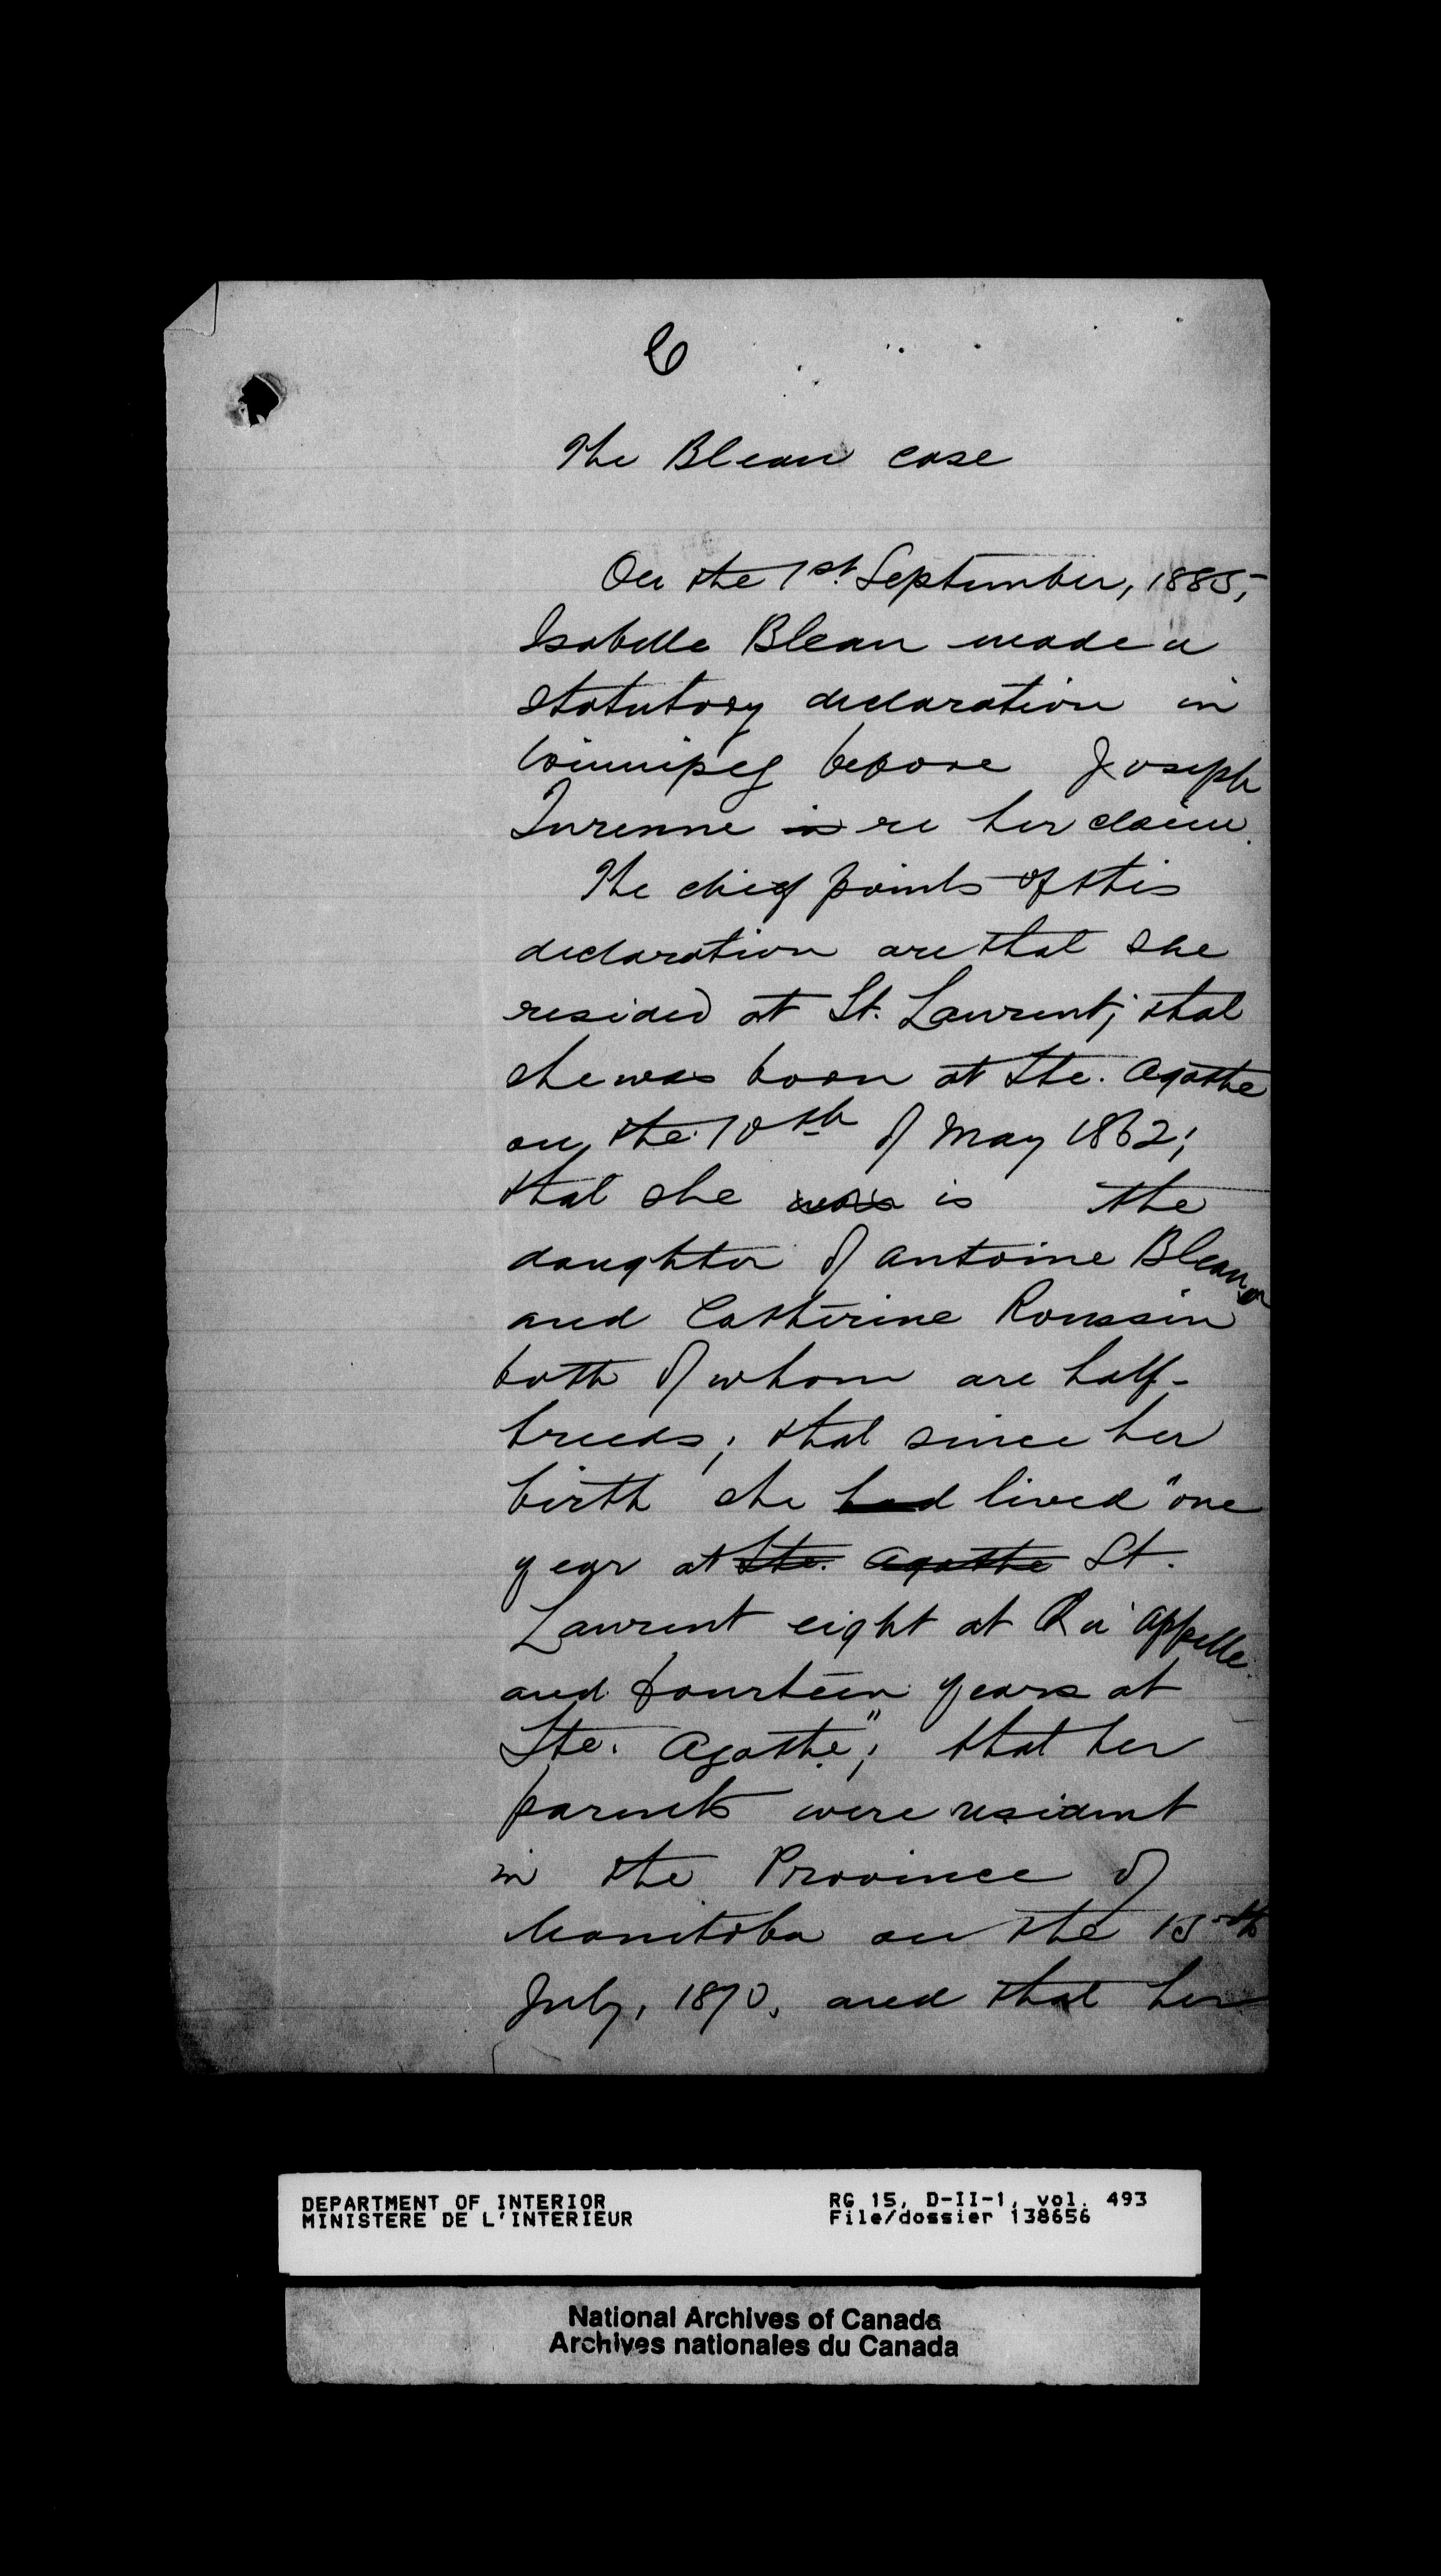 6
The Bleau case
On the 1st. September, 1885,
Isabelle Bleau made a
statutory declaration in
Winnipeg before Joseph
Turenne in re her claim.
The chief points of this
declaration are that she
resided at St. Laurent; that
she was born at Ste. Agathe
on the 10th of May 1862;
that she was is the
daughter of Antoine Bleau
and Catherine Roussin
both of whom are half-
breeds; that since her
birth she had lived "one
year at Ste. Agathe St.
Laurent eight at Qu'appelle
and fourteen years at
Ste. Agathe"; that her
parents were resident
in the Province of
Manitoba on the 15th
July, 1870, and that her
DEPARTMENT OF INTERIOR
MINISTERE DE L'INTERIEUR
RG 15, D-II-1, vol. 493
File/dossier 138656
National Archives of Canada
Archives nationales du Canada